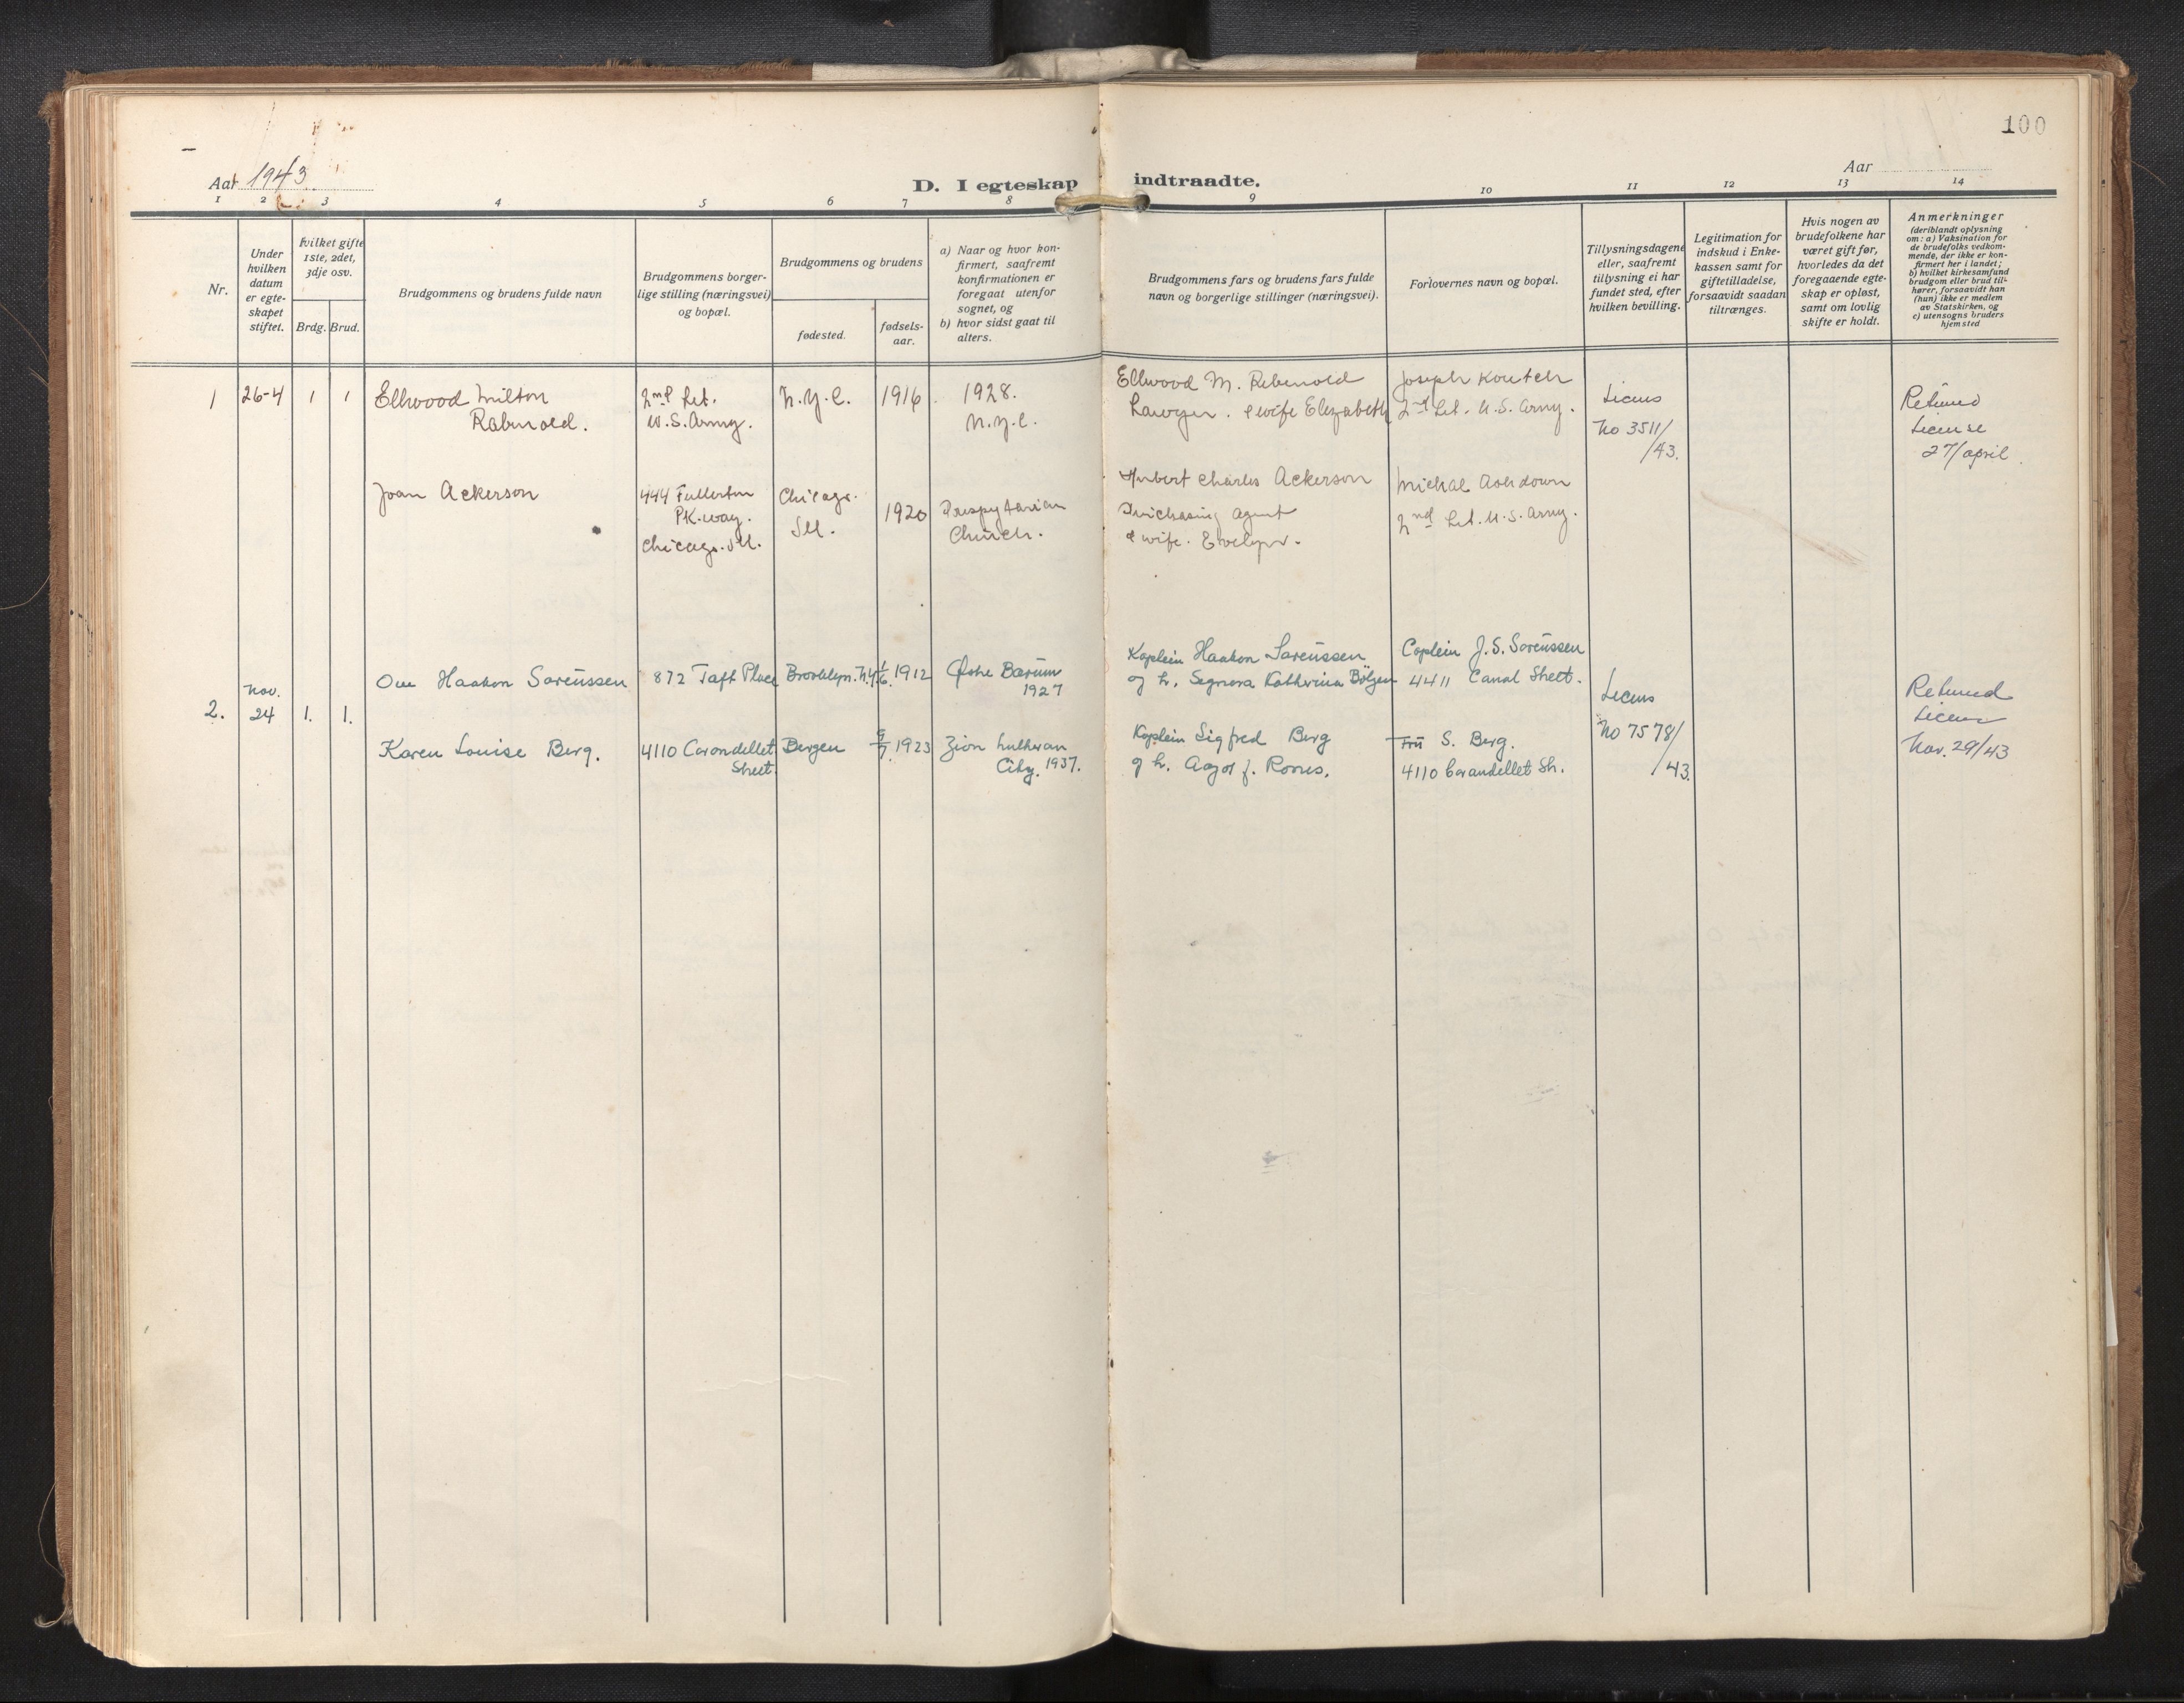 100
Aar 1943
Aar
D. I egteskap indtraadte.
1 2 3 4 5 6 7 8 9 10 11 12 13 14
Nr.
Under
hvilken
datum
er egte-
skapet
stiftet.
hvilket gifte
1ste, 2det,
3dje osv.
Brdg. Brud.
Brudgommens og brudens fulde navn
Brudgommens borger-
lige stilling (næringsvei)
og bopæl.
Brudgommens og brudens
fødested.
fødsels-
aar.
a) Naar og hvor kon-
firmert, saafremt
konfirmationen er
foregaat utenfor
sognet, og
b) hvor sidst gaat til
alters.
Brudgommens fars og brudens fars fulde
navn og borgerlige stillinger (næringsvei).
Forlovernes navn og bopæl.
Tillysningsdagene
eller, saafremt
tillysning ei har
fundet sted, efter
hvilken bevilling.
Legitimation for
indskud i Enke-
kassen samt for
giftetilladelse,
forsaavidt saadan
tiltrænges.
Hvis nogen av
brudefolkene har
været gift før,
hvorledes da det
foregaaende egte-
skap er opløst,
samt om lovlig
skifte er holdt.
Anmerkninger
(deriblandt oplysning
om: a) Vaksination for
de brudefolks vedkom-
mende, der ikke er kon-
firmert her i landet;
b) hvilket kirkesamfund
brudgom eller brud til-
hører, forsaavidt han
(hun) ikke er medlem
av Statskirken, og
c) utensogns bruders
hjemsted
1
26-4
1 1
Ellwood Milton
Rabenold.
2nd Lt.
U.S. Army.
N.Y.C.
1916.
1928.
N.Y.C.
Ellwood M. Rabenold
Lawyer. & wife Elizabeth
Joseph Koutch
2nd Lt. U.S. Army.
Licens
No 3511/
/43.
Retuned
License
27/april.
Joan Ackerson
444 Fullerton
PK.way.
Chicago. Ill.
Chicago.
Ill.
1920
Prespytarian
Church.
Herbert Charles Ackerson
Purchasing Agent
& wife. Evelyn.
Michal Ashdown
2nd Lt. U.S. Army.
2.
Nov.
24
1. 1.
Ove Haakon Sorenssen
872 Taft Place
Brooklyn. N.Y.
1/6. 1912
Østre Bærum
1927
Kaptein Haakon Sorenssen
og h. Signora Katherina
Captein J. S. Sorenssen
4411 Canal Street.
Licens
No 7578/
/43.
Retuned
Licens
Nov. 29/43
Karen Louise Berg.
4110 Carondellet
Street.
Bergen
9/7. 1923
Zion Lutheran
City. 1937.
Kaptein Sigfred Berg
og h. Aagot f.
Frü S. Berg.
4110 Carandellet Str.